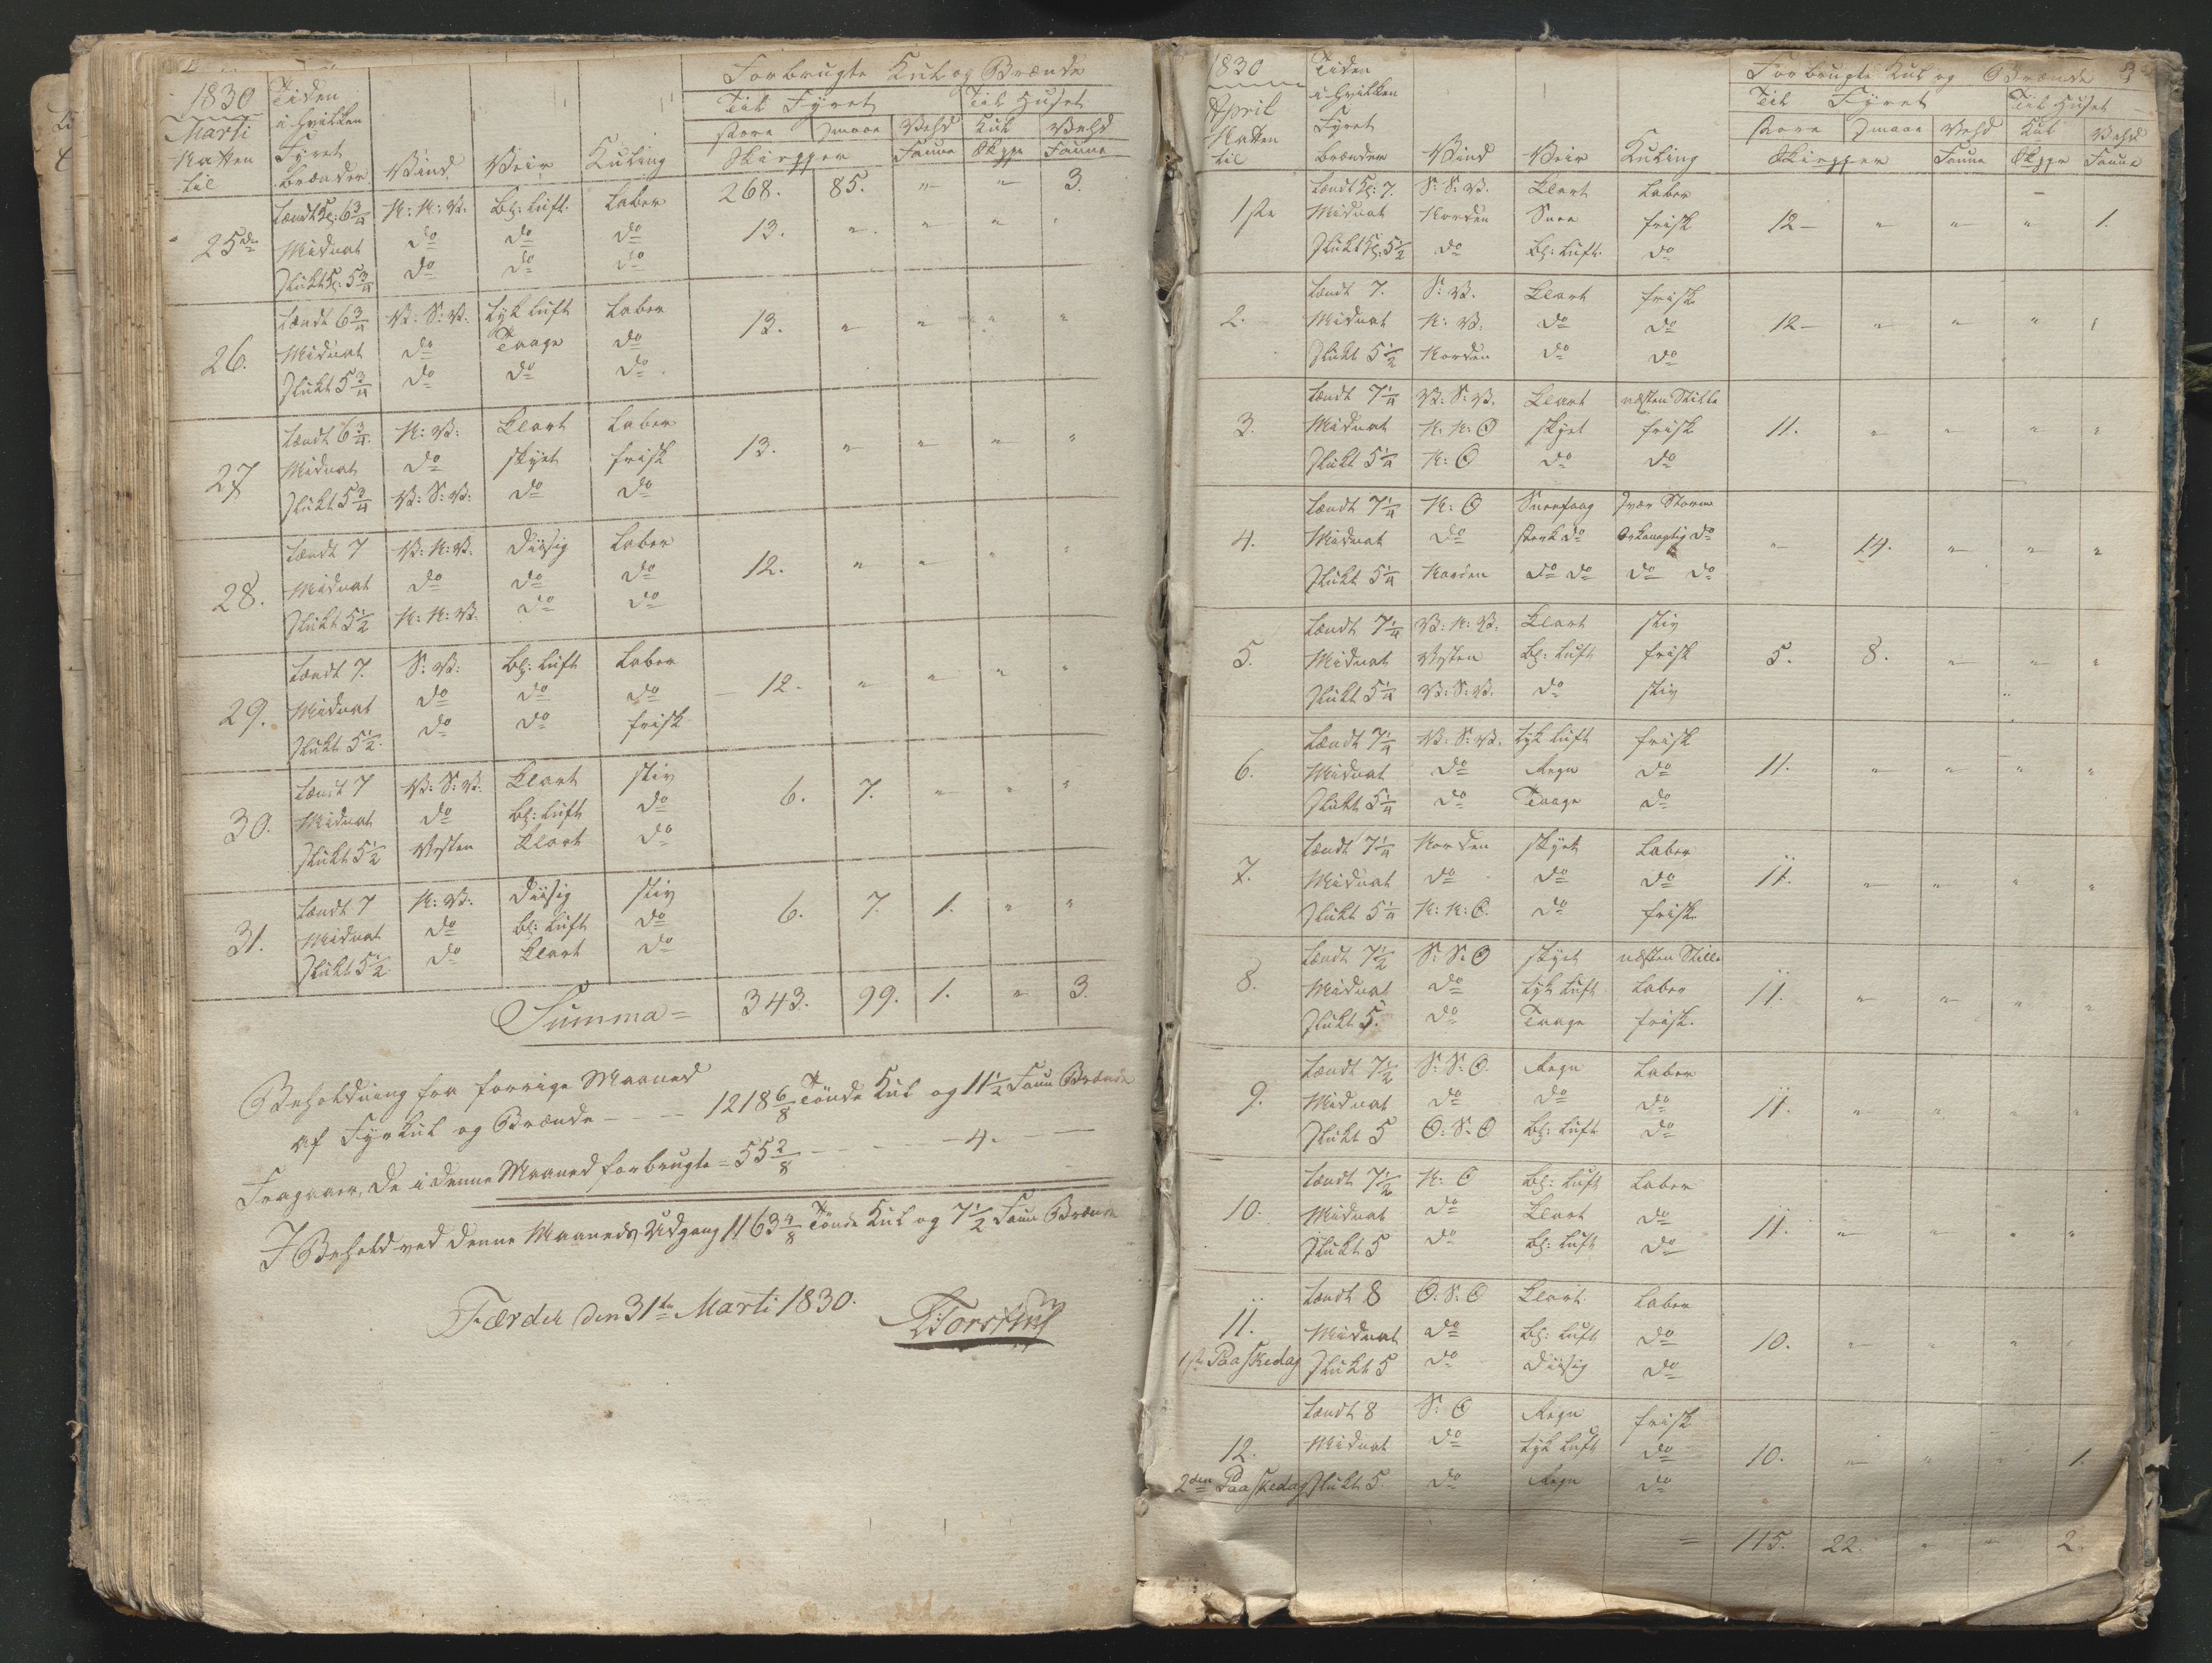 1830 Tiden Forbrugte Kul og Brænde
Marti i hvilken Til Fyret Til Huset
Natten Fyret store smaae Vehd Kul Vehd
til brænder Vind Veir Kuling Skiepper Faune Skppr Faune
268. 85. " " 3.
25de tændt Kl: 6 3/4 N: N: V: bl: Luft. Laber
Midnat do do do 13. " " " "
slukt Kl: 5 3/4 do do do
26. tændt 6 3/4 V: S: V. tyk Luft Laber
Midnat do Taage do 13. " " " "
slukt 5 3/4 do do do
27 tændt 6 3/4 N: V: Klart Laber
Midnat do skyet frisk 13. " " " "
slukt 5 3/4 V: S: V: do do
28. tændt 7 V: N: V. Diisig Laber
Midnat do do do 12. " " " "
slukt 5 1/2 N: N: V. do do
29. tændt 7. S: V: bl: Luft Laber
Midnat do do do 12. " " " "
slukt 5 1/2. do do frisk
30. tændt 7 V: S: V. Klart stiv
Midnat do bl: Luft do 6. 7. " " "
slukt 5 1/2 Vesten Klart do
31. tændt 7 N: V: Diisig stiv
Midnat do bl: Luft do 6. 7. 1. " "
slukt 5 1/2. do Klart do
Summa = 343. 99. 1. " 3.
Beholdning fra forrige Maaned
af Fyrkul og Brænde - - - 1218 6/8 Tønde Kul og 11 1/2 Faun Brænde
Fragaaer, de i denne Maaned forbrugte = 55 2/8 - - - 4. -
I Behold ved denne Maaneds Udgang 1163 4/8 Tønde Kul og 7 1/2 Faun Brænde
Færder den 31te Marti 1830.
1830 Tiden Forbrugte Kul og Brænde
April i hvilken Til Fyret Til Huset
Natten Fyret store smaae Vehd Kul Vehd
til brænder Vind Veir Kuling Skiepper Faune Skppr Faune
1ste tændt Kl: 7. S: S: V. Klart Laber
Midnat Norden Snee frisk 12 - " " " 1.
slukt Kl: 5 1/2 do bl: Luft. do
2. tændt 7. S: V. Klart frisk
Midnat N: V. do do 12 - " " " "
slukt 5 1/2 Norden do do
3. tændt 7 1/4 V: S: V. Klart næsten Stille
Midnat N: N: O skyet frisk 11. " " " "
slukt 5 1/4 N: O do do
4. tændt 7 1/4 N: O Sneefaag svær Storm
Midnat do stærk do Orkanagtig do " 14. " " "
slukt 5 1/4 Norden do do do do
5. tændt 7 1/4 V: N: V. Klart stiv
Midnat Vesten bl: Luft frisk 5. 8. " " "
slukt 5 1/4 V: S: V. do stiv
6. tændt 7 1/4 V: S: V. tyk Luft frisk
Midnat do Regn do 11. " " " "
slukt 5 1/4 do Taage do
7. tændt 7 1/4 Norden skyet Laber
Midnat do do do 11. " " " "
slukt 5 1/4 N: N: O. do frisk
8. tændt 7 1/2 S: S: O skyet næsten Stille
Midnat do tyk Luft Laber 11. " " " "
slukt 5. do Taage frisk.
9. tændt 7 1/2 S: S: O. Regn Laber
Midnat do do do 11. " " " "
slukt 5 O: S: O bl: Luft do
10. tændt 7 1/2 N: O bl: Luft Laber
Midnat do Klart do 11. " " " "
slukt 5 do bl: Luft do
11. tændt 8 O: S: O Klart Laber
Midnat do bl: Luft do 10. " " " "
1ste Paaskedag slukt 5 do Diisig do
tændt 8 S: O Regn frisk
12. Midnat do tyk Luft do 10. " " " 1.
2den Paaskedag slukt 5. do Regn do
= 115. 22. " " 2.